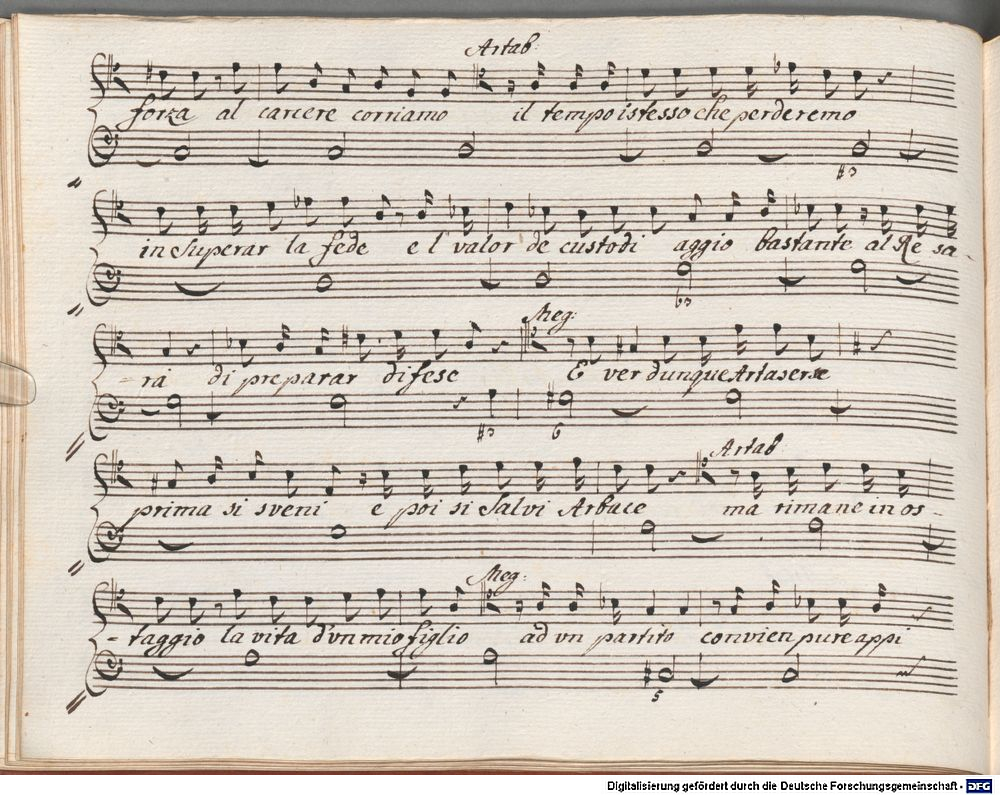 Artab:
forza al carcere corriamo il tempo istesso che perderemo
#3
in Superar la fede e l valor de custodi aggio bastante al Re sa-
b3
Meg:
-rà di preparar difese E ver dunque Artaserse
#3 6
Artab
prima si sveni e poi si Salvi Arbace ma rimane in os-
Meg:
-taggio la vita d'un mio figlio ad un partito convien pure appi
5
Digitalisierung gefördert durch die Deutsche Forschungsgemeinschaft - DFG